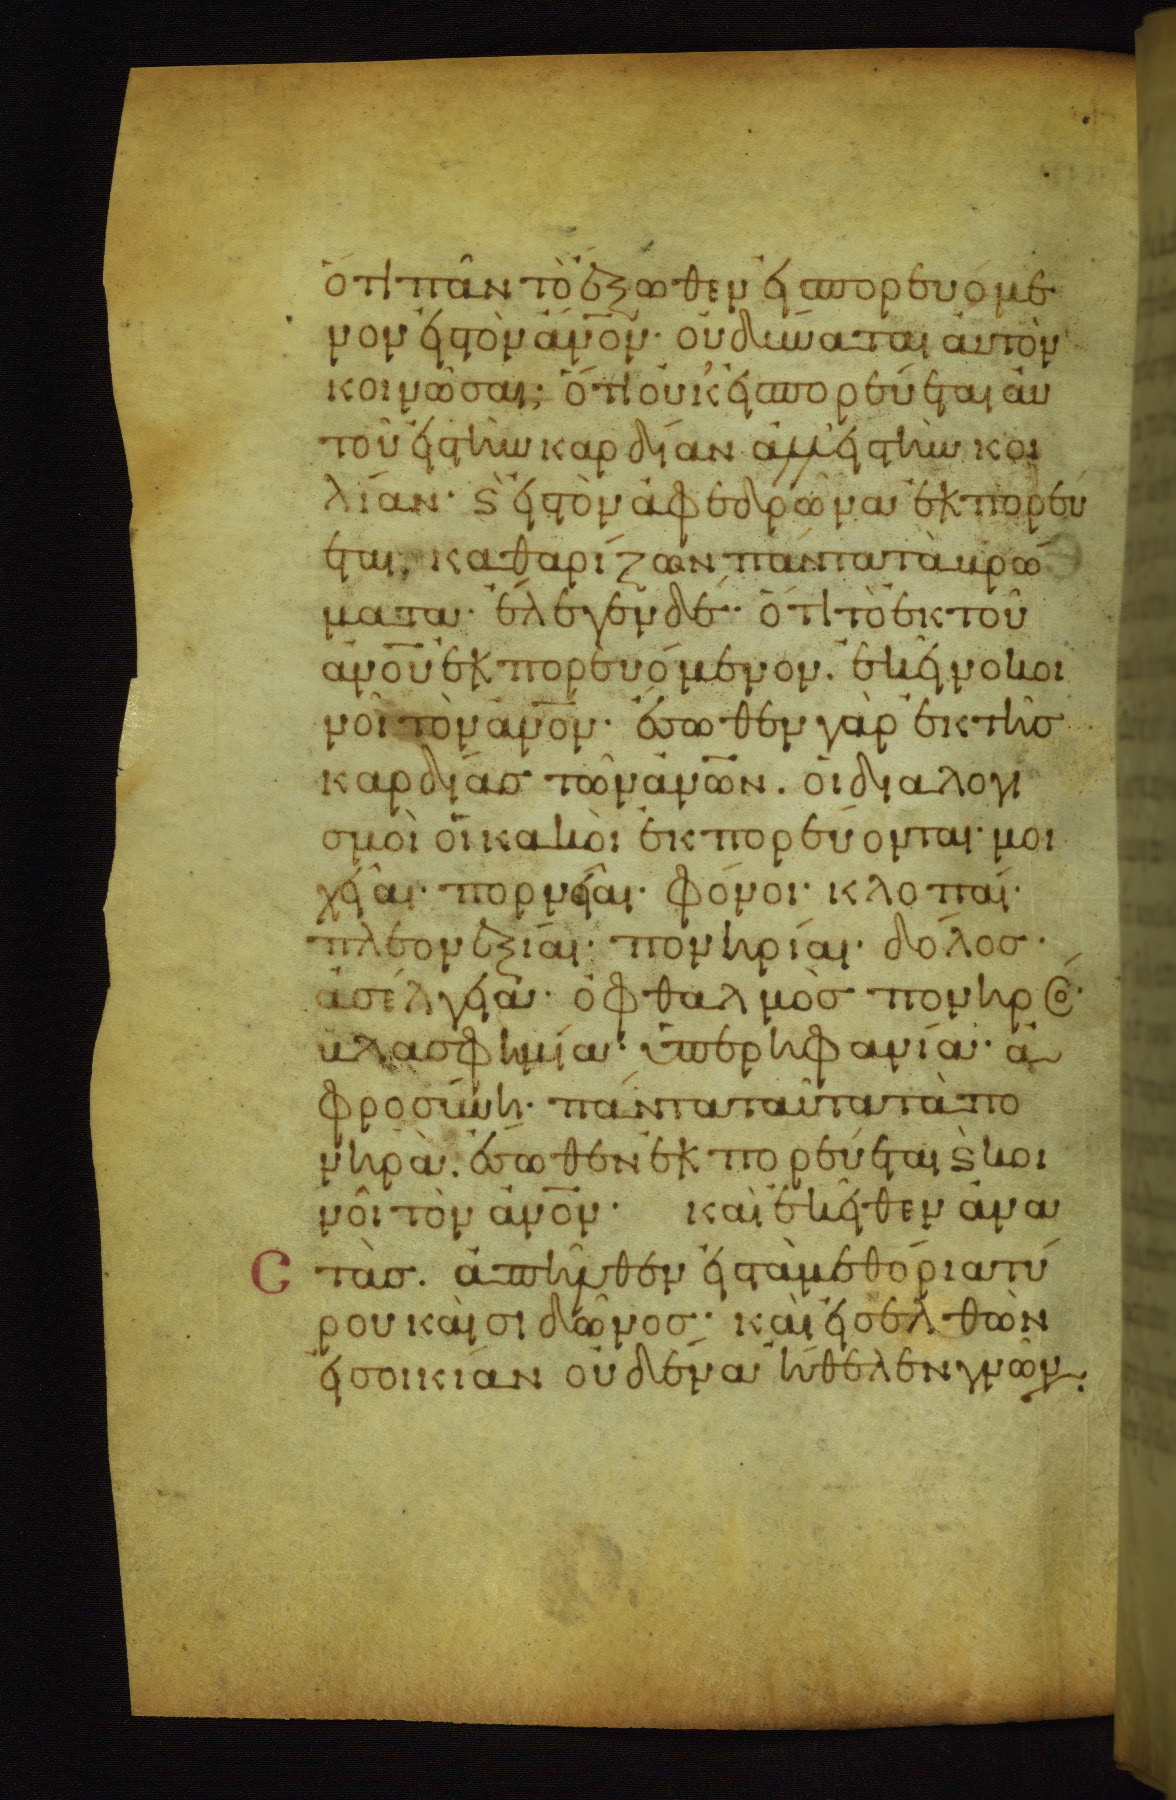 ὅτι πᾶν τὸ ἔξωθεν εἰσπορευόμε
νον εἰς τὸν ἀνον· οὐ δύναται αὐτὸν
κοινῶσαι; ὅτι οὐκ εἰσπορεύεται αὐ
τοῦ εἰς τὴν καρδίαν ἀλλ' εἰς τὴν κοι
λίαν· ϛ εἰς τὸν ἀφεδρῶνα ἐκπορεύ
εται, καθαρίζων πάντα τὰ βρώ
ματα· ἔλεγεν δέ· ὅτι τὸ ἐκ τοῦ
ἀνου ἐκπορευόμενον. ἐκεῖνο κοι
νοῖ τὸν ἀνον· ἔσωθεν γὰρ ἐκ τῆς
καρδίας τῶν ἀνων. οἱ διαλογι
σμοὶ οἱ κακοὶ ἐκπορεύονται· μοι
χεῖαι· πορνεῖαι· φόνοι· κλοπαί·
πλεονεξίαι· πονηρίαι· δόλος·
ἀσέλγεια· ὀφθαλμὸς πονηρός·
βλασφημία· ὑπερηφανία· ἀ
φροσύνη· πάντα ταῦτα τὰ πο
νηρὰ. ἔσωθεν ἐκπορεύεται ϛ κοι
νοῖ τὸν ἀνον· καὶ ἐκεῖθεν ἀνα
στὰς. ἀπῆλθεν εἰς τὰ μεθόρια τύ
ρου καὶ σιδῶνος· καὶ εἰσελθὼν
εἰς οἰκίαν οὐδένα ἤθελεν γνῶν.